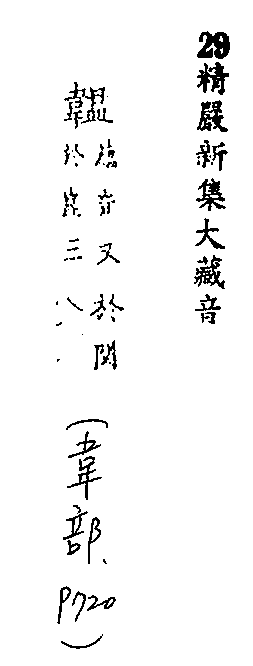 29精嚴新集大藏音
韞
音又於問
於 三
(韋部、P720)